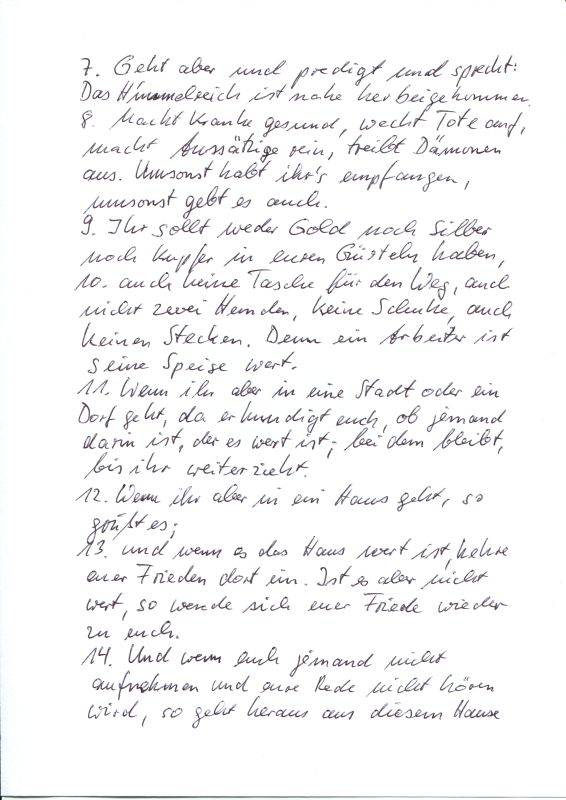 7. Geht aber und predigt und sprecht:
Das Himmelreich ist nahe herbeigekommen.
8. Macht Kranke gesund, weckt Tote auf,
macht Aussätzige rein, treibt Dämonen
aus. Umsonst habt ihr's empfangen,
umsonst gebt es auch.
9. Ihr sollt weder Gold noch Silber
noch Kupfer in euren Gürteln haben,
10. auch keine Tasche für den Weg, auch
nicht zwei Hemden, keine Schuhe, auch
keinen Stecken. Denn ein Arbeiter ist
seine Speise wert.
11. Wenn ihr aber in eine Stadt oder ein
Dorf geht, da erkundigt euch, ob jemand
darin ist, der es wert ist; bei dem bleibt,
bis ihr weiterzieht.
12. Wenn ihr aber in ein Haus geht, so
grüßt es;
13. und wenn es das Haus wert ist, kehre
euer Frieden dort ein. Ist es aber nicht
wert, so wende sich euer Friede wieder
zu euch.
14. Und wenn euch jemand nicht
aufnehmen und eure Rede nicht hören
wird, so geht heraus aus diesem Hause